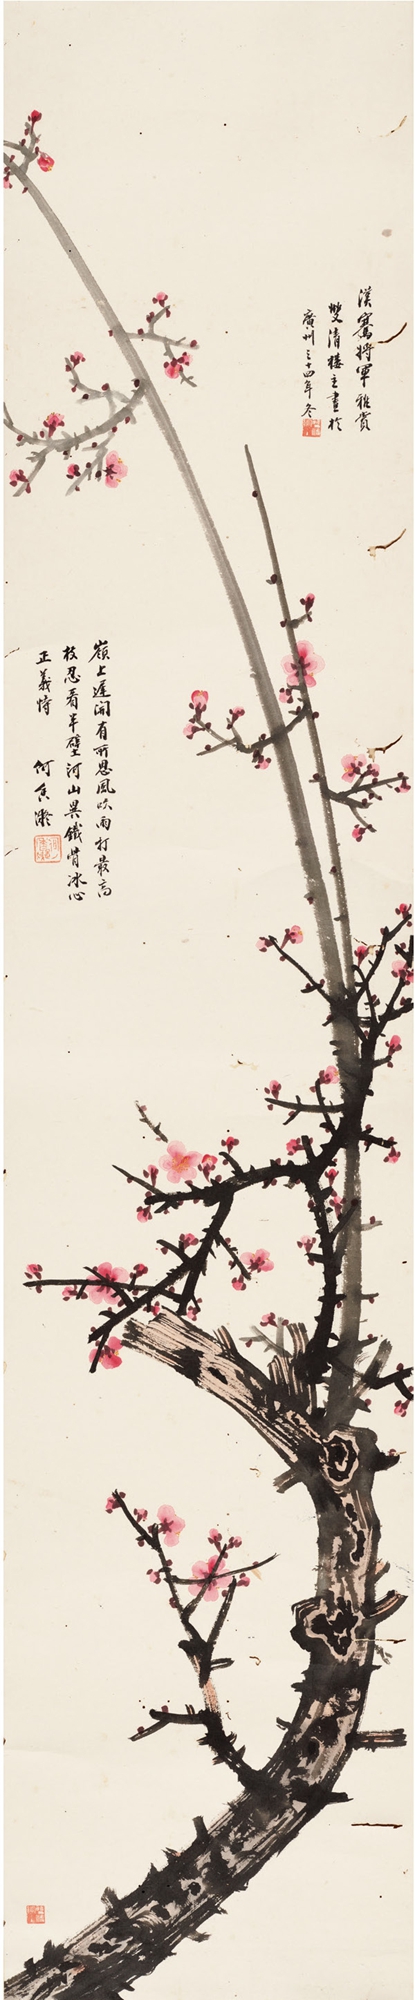 漢騫將軍雅賞
雙清樓主畫於
廣州三十四年冬
嶺上遲開有所思風吹雨打最高
枝忍看半壁河山異鐵骨冰心
正義恃
何香凝